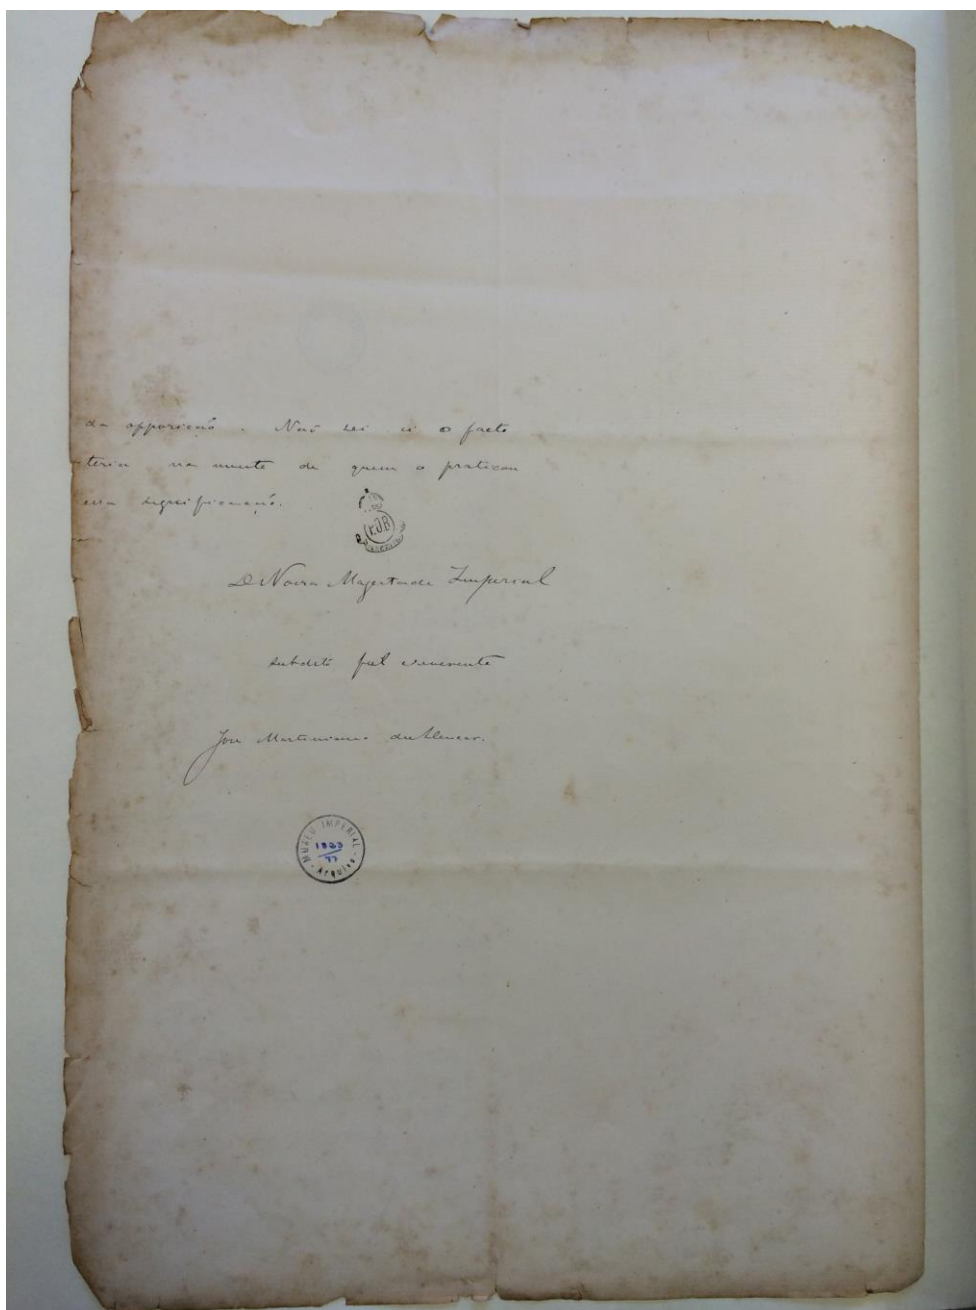 da opposição. Não sei si o facto
teria na mente de quem o praticou
essa significação.
P.D.B
De Vossa Magestade Imperial
subdito fiel e reverente
José Martiniano de Alencar.
MUSEU IMPERIAL
1823
77
Arquivo